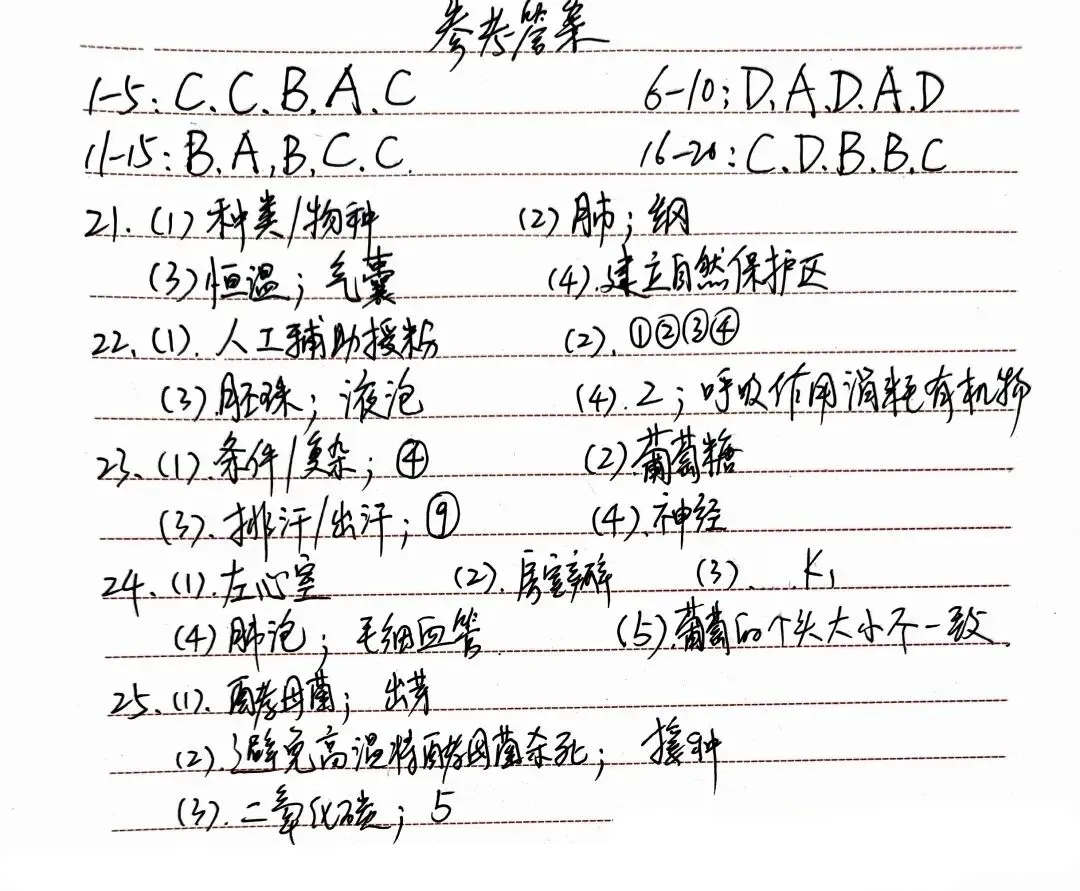 参考答案
1-5: C. C. B. A. C 6-10: D. A. D. A. D
11-15: B. A. B. C. C. 16-20: C. D. B. B. C
21. (1) 种类/物种 (2) 肺; 纲
(3) 恒温; 气囊 (4). 建立自然保护区
22. (1). 人工辅助授粉 (2). ①②③④
(3). 胚珠; 液泡 (4). 2; 呼吸作用消耗有机物
23. (1). 条件/复杂; ④ (2). 葡萄糖
(3). 排汗/出汗; ⑨ (4). 神经
24. (1). 左心室 (2). 房室瓣 (3). K1
(4) 肺泡; 毛细血管 (5). 葡萄的个头大小不一致.
25. (1). 酵母菌; 出芽
(2). 避免高温将酵母菌杀死; 接种
(3). 二氧化碳; 5